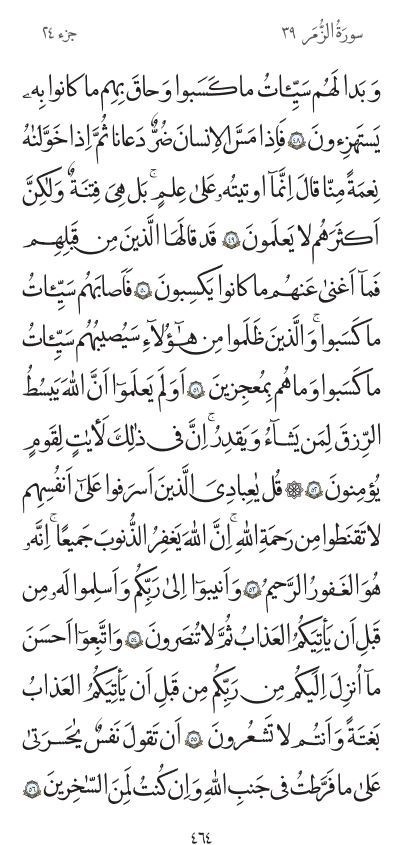 سورة الزُّمَر ٣٩
جزء ٢٤
وَ بَدا لَهُم سَيِّـٔاتُ ما كَسَبوا وَ حاقَ بِهِم ما كانوا بِهٖ
يَستَهزِءونَ ﴿٤٨﴾ فَاِذا مَسَّ الاِنسانَ ضُرٌّ دَعانا ثُمَّ اِذا خَوَّلنٰهُ
نِعمَةً مِنّا قالَ اِنَّمآ اوتيتُهٗ عَلىٰ عِلمٍ ۚ بَل هِيَ فِتنَةٌ وَ لٰكِنَّ
اَكثَرَهُم لا يَعلَمونَ ﴿٤٩﴾ قَد قالَهَا الَّذينَ مِن قَبلِهِم
فَمآ اَغنىٰ عَنهُم ما كانوا يَكسِبونَ ﴿٥٠﴾ فَاَصابَهُم سَيِّـٔاتُ
ما كَسَبوا ۚ وَ الَّذينَ ظَلَموا مِن هٰٓؤُلآءِ سَيُصيبُهُم سَيِّـٔاتُ
ما كَسَبوا وَ ما هُم بِمُعجِزينَ ﴿٥١﴾ اَوَ لَم يَعلَموٓا اَنَّ اللّٰهَ يَبسُطُ
الرِّزقَ لِمَن يَشآءُ وَ يَقدِرُ ۚ اِنَّ في ذٰلِكَ لَأٰيٰتٍ لِقَومٍ
يُؤمِنونَ ﴿٥٢﴾ ۞ قُل يٰعِبادِيَ الَّذينَ اَسرَفوا عَلىٰٓ اَنفُسِهِم
لا تَقنَطوا مِن رَحمَةِ اللّٰهِ ۚ اِنَّ اللّٰهَ يَغفِرُ الذُّنوبَ جَميعًا ۚ اِنَّهٗ
هُوَ الغَفورُ الرَّحيمُ ﴿٥٣﴾ وَ اَنيبوٓا اِلىٰ رَبِّكُم وَ اَسلِموا لَهٗ مِن
قَبلِ اَن يَأتِيَكُمُ العَذابُ ثُمَّ لا تُنصَرونَ ﴿٥٤﴾ وَ اتَّبِعوٓا اَحسَنَ
مآ اُنزِلَ اِلَيكُم مِن رَبِّكُم مِن قَبلِ اَن يَأتِيَكُمُ العَذابُ
بَغتَةً وَ اَنتُم لا تَشعُرونَ ﴿٥٥﴾ اَن تَقولَ نَفسٌ يٰحَسرَتىٰ
عَلىٰ ما فَرَّطتُ في جَنبِ اللّٰهِ وَ اِن كُنتُ لَمِنَ السّٰخِرينَ ﴿٥٦﴾
٤٦٤